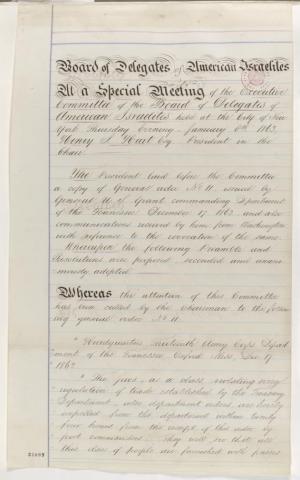 Board of Delegates of American Israelites
At a Special Meeting of the Executive
Committee of the Board of Delegates of
American Israelites held at the City of New
York Thursday Evening January 8th 1863.
Henry I. Hart Esq. President in the
Chair.
The President laid before the Committee
a copy of General order No 11 issued by
General U. S. Grant commanding Department
of the Tennessee December 17 1862 and also
communications received by him from Washington
with reference to the revocation of the same.
Whereupon the following Preamble and
Resolutions were proposed seconded and unani-
mously adopted.
Whereas the attention of this Committee
has been called by the Chairman to the follow-
ing general order No 11.
"Headquarters thirteenth Army Corps Depart-
ment of the Tennessee Oxford Miss. Dec 17
1862
"The Jews, as a class, violating every
regulation of trade established by the Treasury
Department, also department orders, are hereby
expelled from the department within twenty
four hours from the receipt of this order by
post commanders. They will see that all
this class of people are furnished with passes